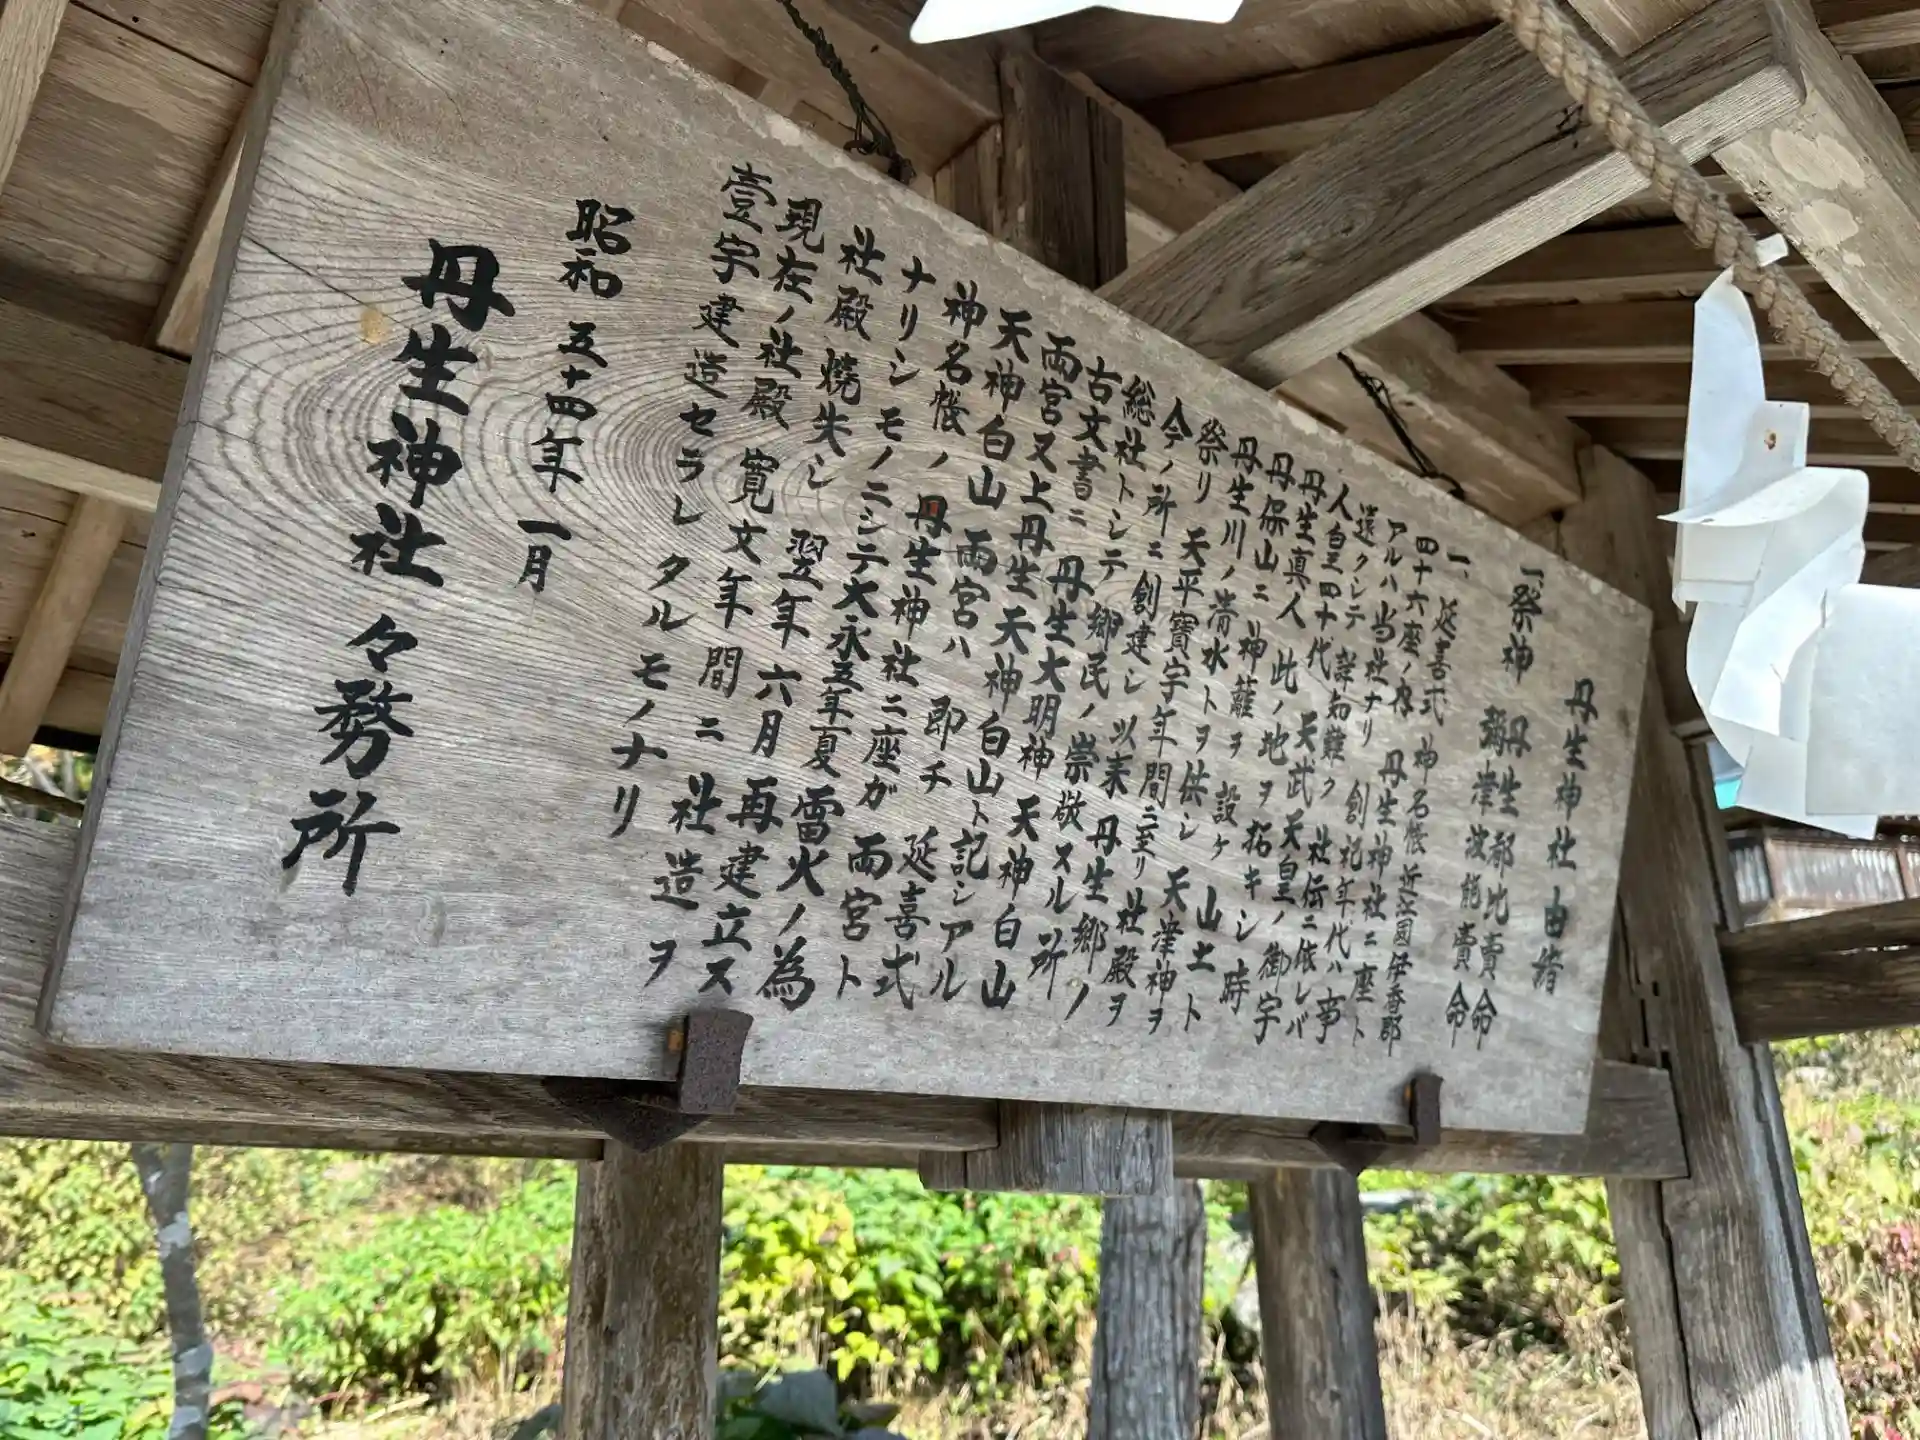 丹生神社由緒
一、祭神 丹生都比賣命
彌津波能賣命
一、延喜式神名帳近江國伊香郡
四十六座ノ内 丹生神社二座ト
アルハ当社ナリ 創祀年代ハ事
遠クシテ詳知難ク 社伝ニ依レバ
人皇四十代 天武天皇ノ御宇
丹生真人 此ノ地ヲ拓キシ時
丹保山ニ神籬ヲ設ケ 山土ト
丹生川ノ清水トヲ供シ 天津神ヲ
祭リ 天平寶宇年間ニ至リ 社殿ヲ
今ノ所ニ創建シ 以来 丹生郷ノ
総社トシテ 郷民ノ崇敬スル所
古文書ニ 丹生大明神 天神白山
両宮又上丹生天神白山ト記シアル
天神白山両宮ハ 即チ 延喜式
神名帳ノ丹生神社二座ガ 両宮ト
ナリシモノニシテ大永五年夏雷火ノ為
社殿焼失シ 翌年六月再建立ス
現在ノ社殿 寛文年間ニ 社造ヲ
壹宇建造セラレタルモノナリ
昭和五十四年一月
丹生神社々務所